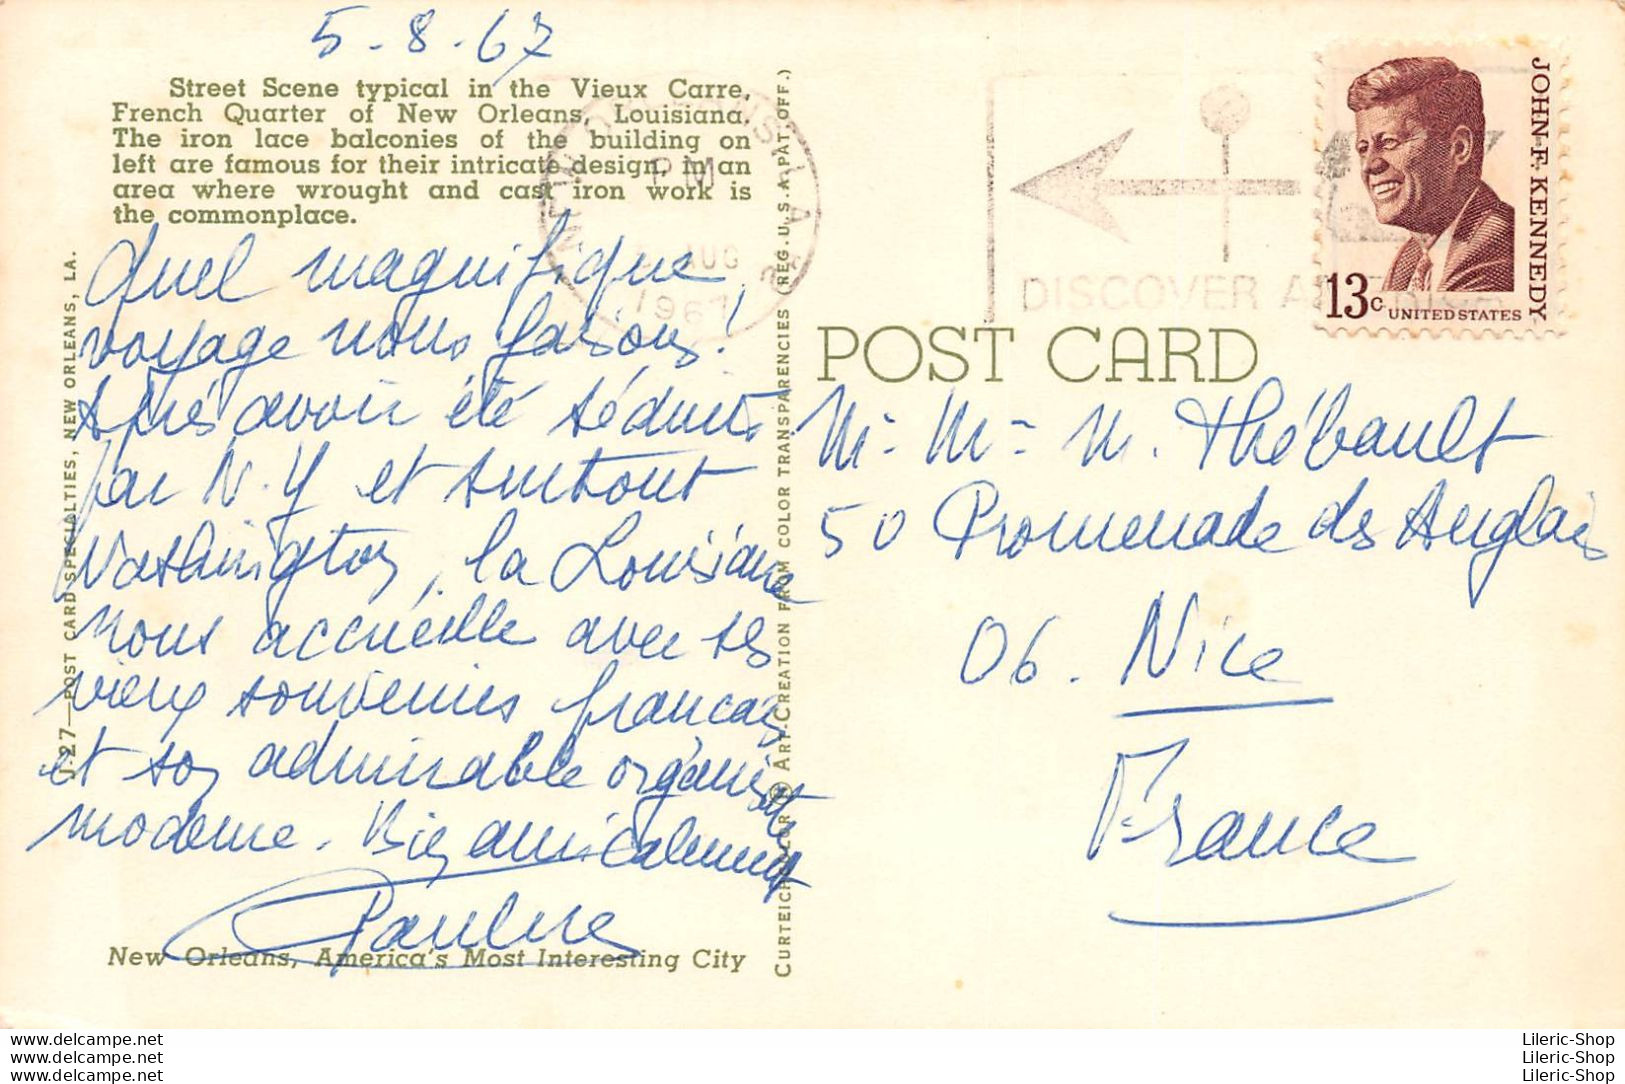 5-8-67
Street Scene typical in the Vieux Carre,
French Quarter of New Orleans, Louisiana.
The iron lace balconies of the building on
left are famous for their intricate design, in an
area where wrought and cast iron work is
the commonplace.
Quel magnifique
voyage nous faisons!
Après avoir été séduits
par N.Y et surtout
Washington, la Louisiane
nous accueille avec ses
vieux souvenirs français
et son admirable organisat.
moderne. Bien amicalement
Pauline
New Orleans, America's Most Interesting City
J.27—POST CARD SPECIALTIES, NEW ORLEANS, LA.
CURTEICHCOLOR ® ART-CREATION FROM COLOR TRANSPARENCIES (REG. U.S.A. PAT. OFF.)
NEW ORLEANS, LA
PM
AUG
1967
DISCOVER AMERICA
JOHN F. KENNEDY
13c UNITED STATES
POST CARD
M- Me- M. Thébault
50 Promenade des Anglais
06. Nice
France
www.delcampe.net
www.delcampe.net
www.delcampe.net
Lileric-Shop
Lileric-Shop
Lileric-Shop